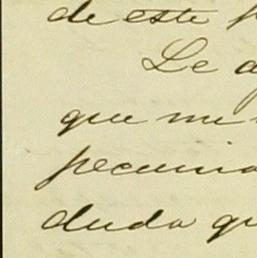 de este p
Le d
que mi
pecunia
duda qu